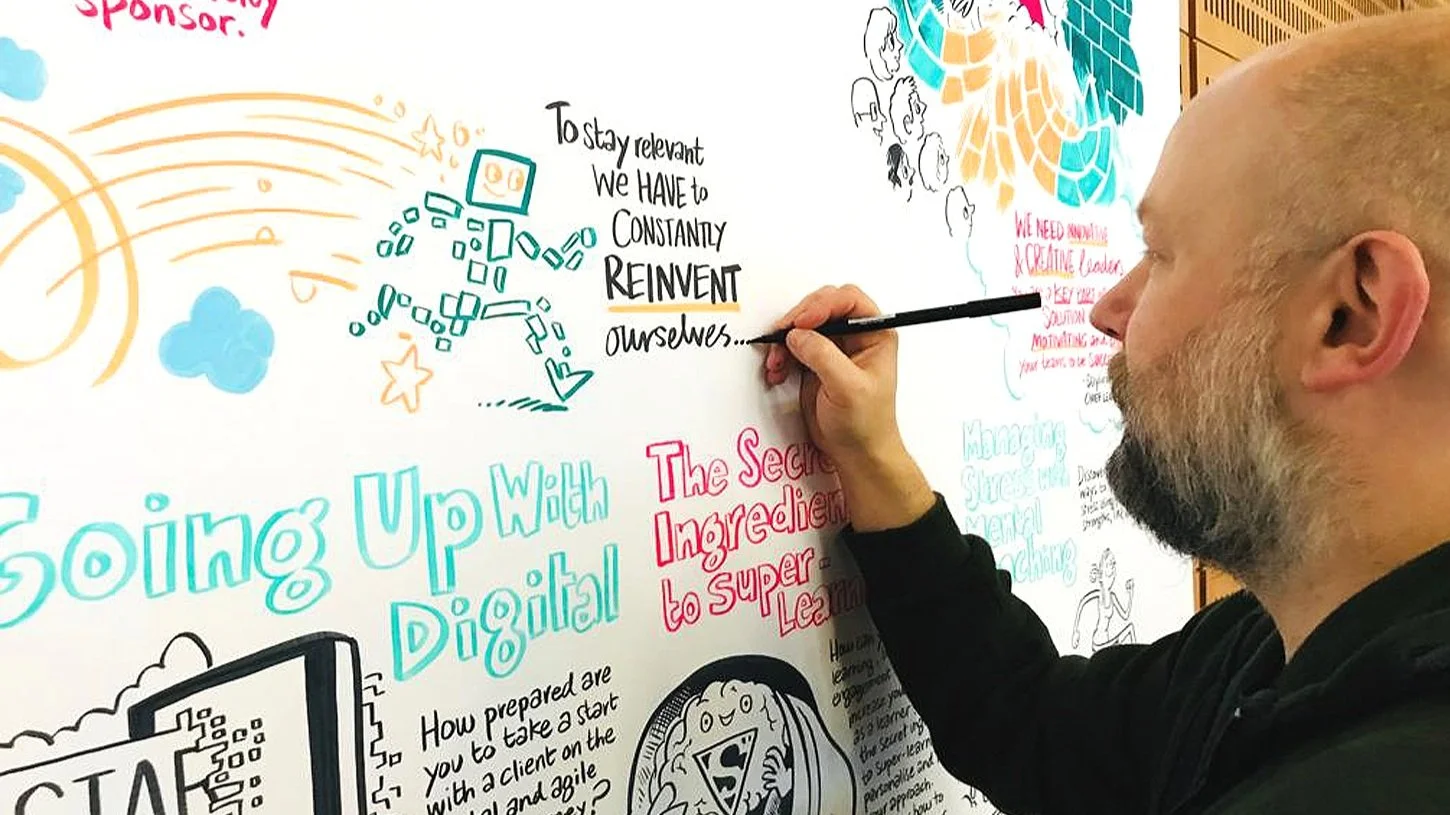 sponsor.
To stay relevant
WE HAVE to
CONSTANTLY
REINVENT
ourselves...
WE NEED INNOVATIVE
& CREATIVE leaders
KEY PART
SOLUTION
MOTIVATING and
your teams to be
Going Up With
Digital
The
Ingredien
to Super-
Learn
Managing
Stress with
Mental
Discov
ways to
How prepared are
you to take a start
with a client on the
and agile
STA
S
How can
learning
engagement
increase your
as a learner
the secret ing
to super-learn
personalise and
your approach.
how to